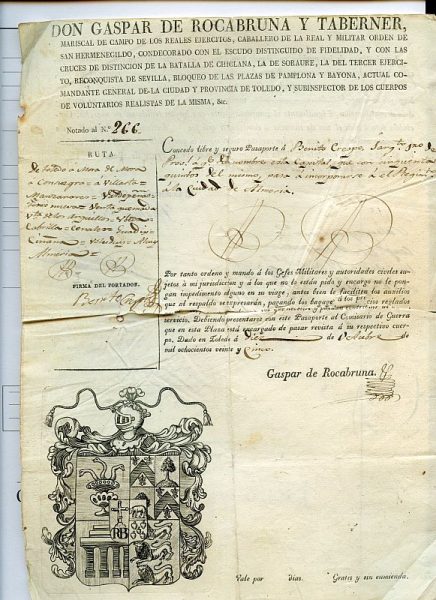 DON GASPAR DE ROCABRUNA Y TABERNER,
MARISCAL DE CAMPO DE LOS REALES EJERCITOS, CABALLERO DE LA REAL Y MILITAR ORDEN DE
SAN HERMENEGILDO, CONDECORADO CON EL ESCUDO DISTINGUIDO DE FIDELIDAD, Y CON LAS
CRUCES DE DISTINCION DE LA BATALLA DE CHICLANA, LA DE SORAURE, LA DEL TERCER EJERCI-
TO, RECONQUISTA DE SEVILLA, BLOQUEO DE LAS PLAZAS DE PAMPLONA Y BAYONA, ACTUAL CO-
MANDANTE GENERAL DE LA CIUDAD Y PROVINCIA DE TOLEDO, Y SUBINSPECTOR DE LOS CUERPOS
DE VOLUNTARIOS REALISTAS DE LA MISMA, &c.
Notado al N.º 266
RUTA
de toledo a Mora de Mora
a Consuegra a Villarta
Manzanares
Almeria
FIRMA DEL PORTADOR.
Concedo libre y seguro Pasaporte á Benito Crespo, Sarg.to 2.º de
Prov.
del mismo, pasa á incorporarse á el
á la Ciudad de Almeria
Por tanto ordeno y mando á los Gefes Militares y autoridades civiles suge-
tos á mi jurisdiccion y á los que no lo están pido y encargo no le pon-
gan impedimento alguno en su viage, antes bien le faciliten los auxilios
que al respaldo se espresarán, pagando los bagages á los precios reglados
servicio. Debiendo presentarse con este Pasaporte al Comisario de Guerra
que en esta Plaza está encargado de pasar revista á su respectivo cuer-
po. Dado en Toledo á Diez de Octubre de
mil ochocientos veinte y cinco.
Gaspar de Rocabruna.
RB
Vale por dias. Gratis y sin enmienda.